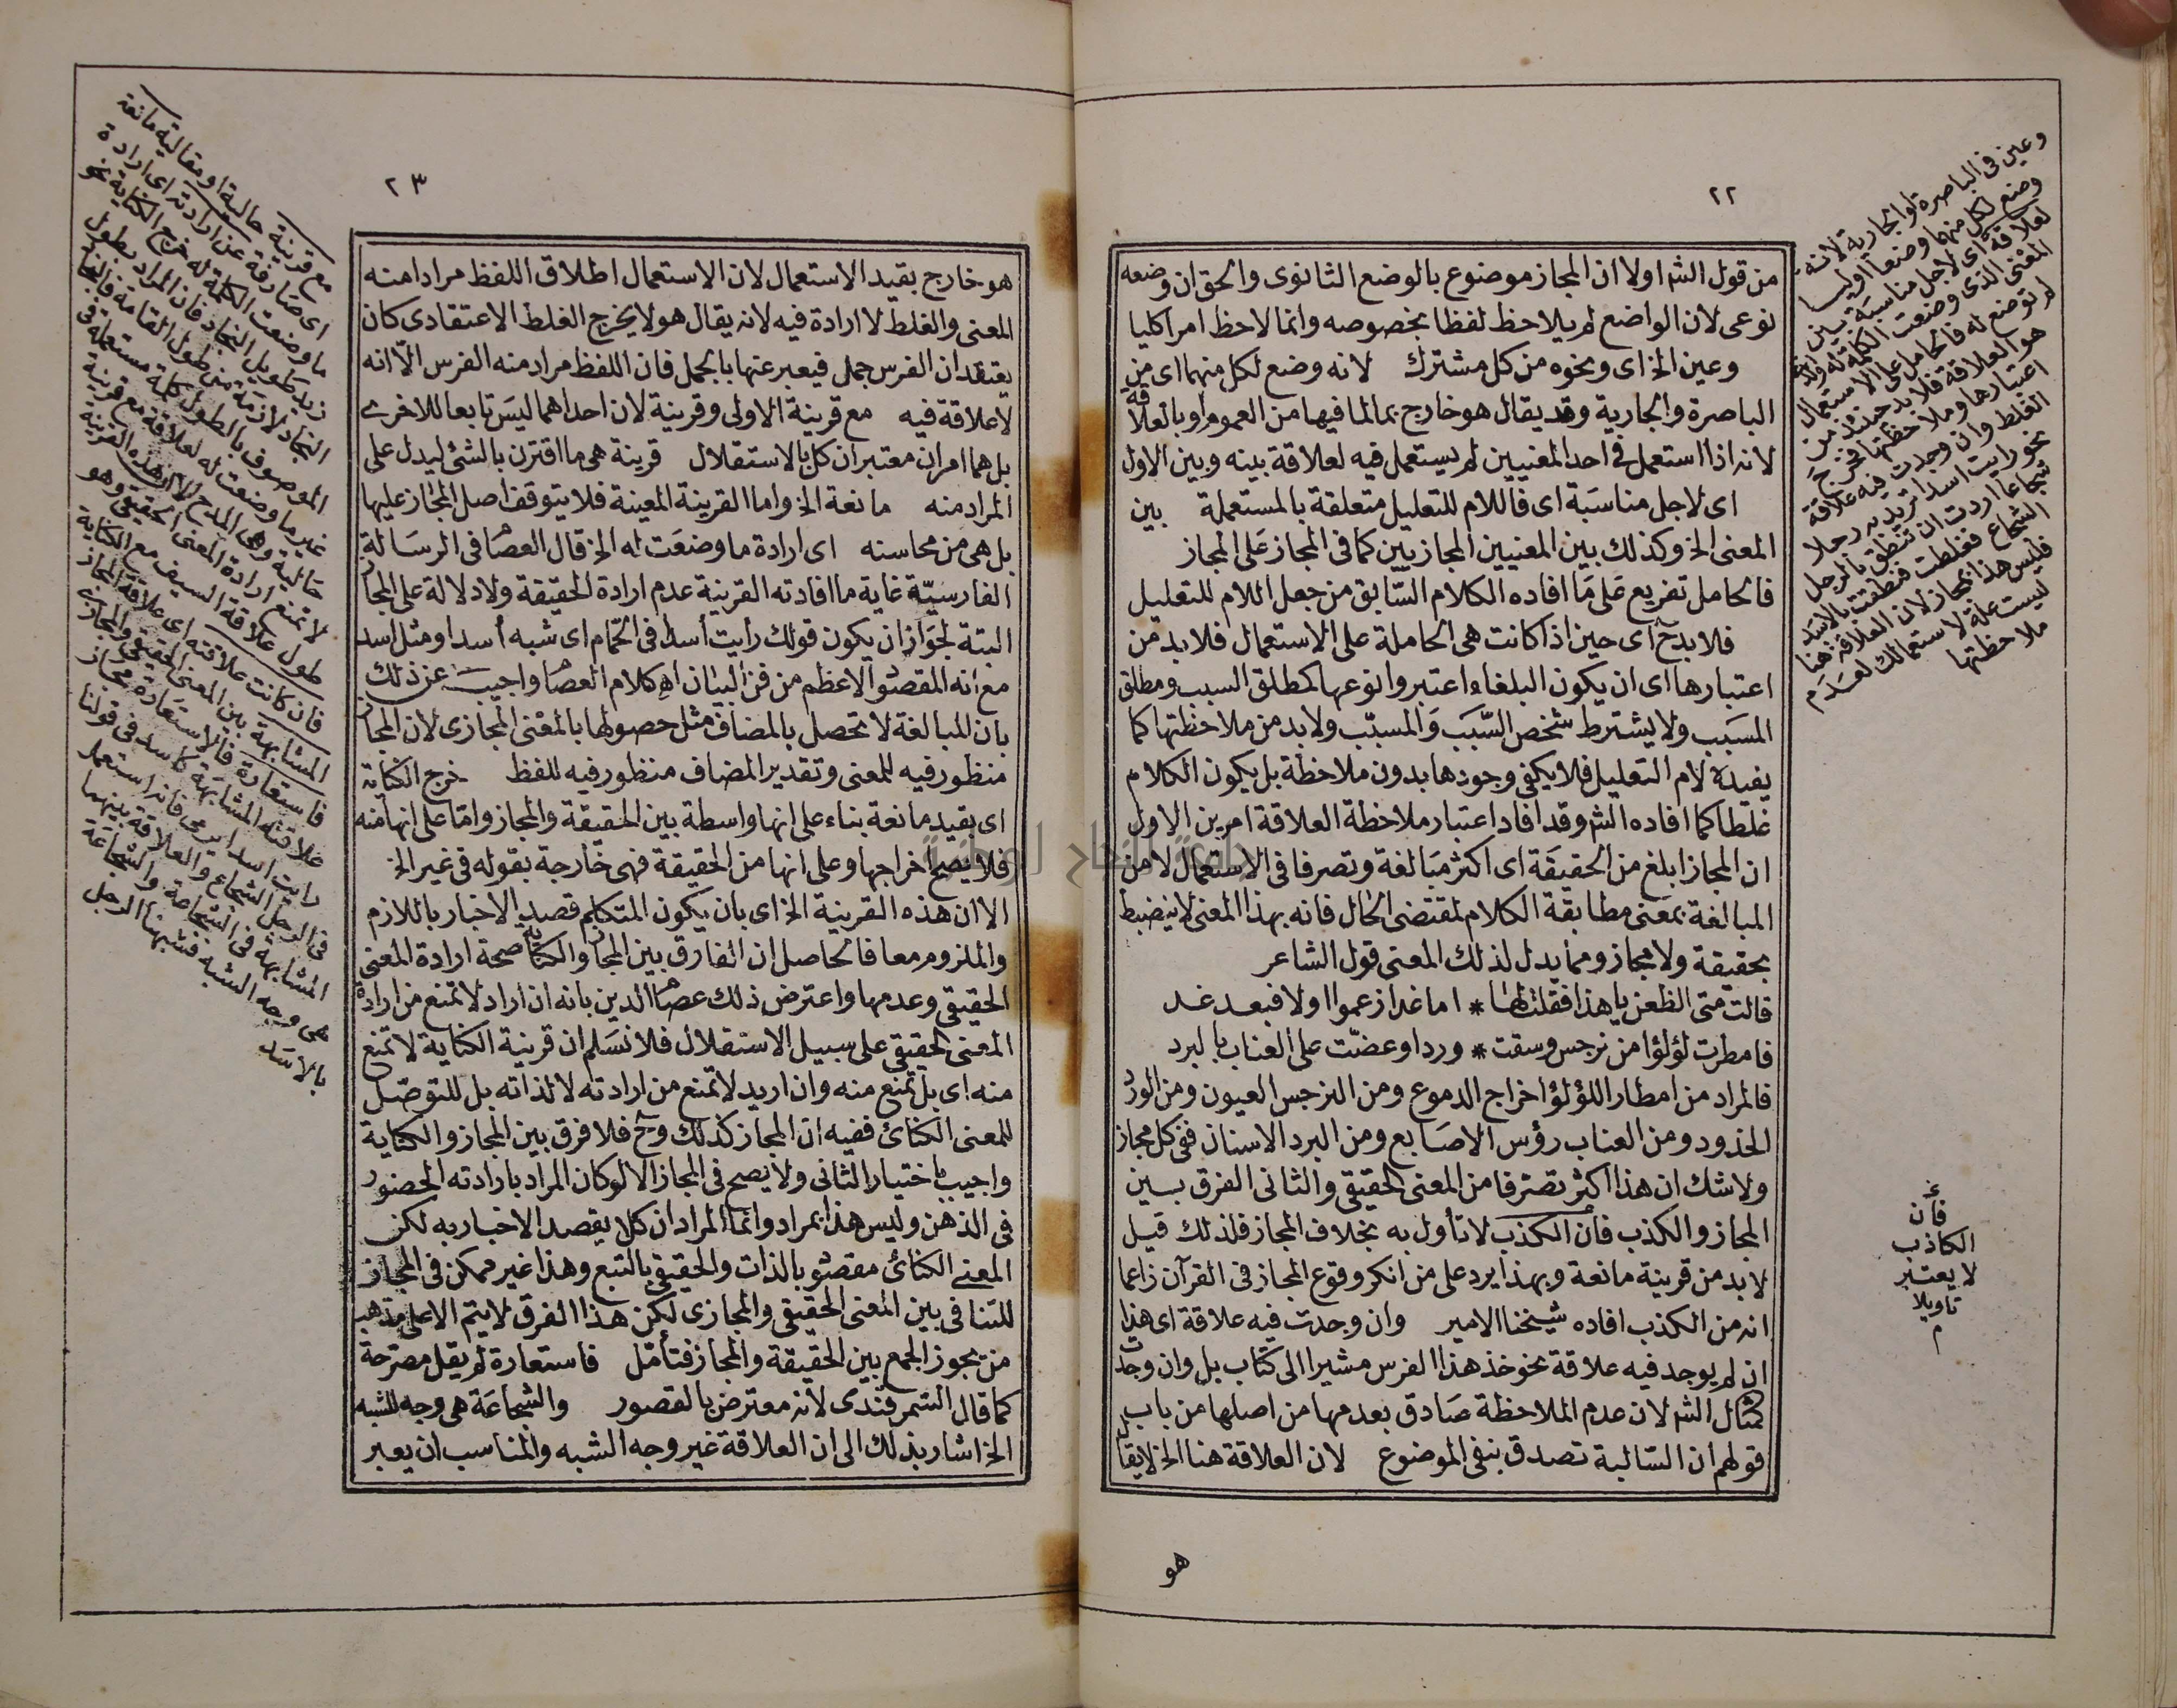 ٢٢
من قول الش اولا ان المجاز موضوع بالوضع الثانوى والحق ان وضعه
نوعى لان الواضع لم يلاحظ لفظا بخصوصه وانما لاحظ امرا كليا
وعين الخ اى ونحوه من كل مشترك لانه وضع لكل منهما اى من
الباصرة والجارية وقد يقال هو خارج بما لما فيها من العموم او بالعلاقة
لانه اذا استعمل فى احد المعنيين لم يستعمل فيه لعلاقة بينه وبين الاول
اى لاجل مناسبة اى فاللام للتعليل متعلقة بالمستعملة بين
المعنى الخ وكذلك بين المعنيين المجازيين كما فى المجاز على المجاز
فالحامل تفريع على ما افاده الكلام السابق من جعل اللام للتعليل
فلا بد ح اى حين اذ كانت هى الحاملة على الاستعمال فلا بد من
اعتبارها اى ان يكون البلغاء اعتبروا نوعها كمطلق السبب ومطلق
المسبب ولا يشترط شخص السبب والمسبب ولا بد من ملاحظتها كما
يفيده لام التعليل فلا يكفى وجودها بدون ملاحظة بل يكون الكلام
غلطا كما افاده الش وقد افاد اعتبار ملاحظة العلاقة امرين الاول
ان المجاز ابلغ من الحقيقة اى اكثر مبالغة وتصرفا فى الاستعمال لا من
المبالغة بمعنى مطابقة الكلام لمقتضى الحال فانه بهذا المعنى لا ينضبط
بحقيقة ولا مجاز ومما يدل لذلك المعنى قول الشاعر
قالت متى الظعن يا هذا فقلت لها * اما غدا زعموا اولا فبعد غد
فامطرت لؤلؤا من نرجس وسقت * وردا وعضت على العناب بالبرد
فالمراد من امطار اللؤلؤ اخراج الدموع ومن النرجس العيون ومن الورد
الخدود ومن العناب رؤس الاصابع ومن البرد الاسنان ففى كل مجاز
ولا شك ان هذا اكثر تصرفا من المعنى الحقيقى والثانى الفرق بين
المجاز والكذب فان الكذب لا تأول به بخلاف المجاز فلذلك قيل
لا بد من قرينة مانعة وبهذا يرد على من انكر وقوع المجاز فى القرآن زاعما
انه من الكذب افاده شيخنا الامير وان وجدت فيه علاقة اى هذا
ان لم يوجد فيه علاقة نحو خذ هذا الفرس مشيرا الى كتاب بل وان وجدت
كمثال الش لان عدم الملاحظة صادق بعدمها من اصلها من باب
قولهم ان السالبة تصدق بنفى الموضوع لان العلاقة هنا الخ لا يقال
هو
وعين فى الباصرة او الجارية لانه
وضع لكل منهما وضعا اوليا
لعلاقة اى لاجل مناسبة بين
المعنى الذى وضعت الكلمة له والذى
لم توضع له فالحامل على الاستعمال
هو العلاقة فلا بد حينئذ من
اعتبارها وملاحظتها فخرج
الغلط وان وجدت فيه علاقة
نحو رايت اسدا تريد به رجلا
شجاعا اردت ان تنطق بالرجل
الشجاع فغلطت فنطقت بالاسد
فليس هذا بمجاز لان العلاقة هنا
ليست علة لاستعمالك لعدم
ملاحظتها
فان
الكاذب
لا يعتبر
تاويلا
م
٢٣
هو خارج بقيد الاستعمال لان الاستعمال اطلاق اللفظ مرادا منه
المعنى والغلط لا ارادة فيه لانه يقال هو لا يخرج الغلط الاعتقادى كان
يعتقد ان الفرس جمل فيعبر عنها بالجمل فان اللفظ مراد منه الفرس الا انه
لا علاقة فيه مع قرينة الاولى وقرينة لان احداهما ليس تابعا للاخرى
بل هما امران معتبران كل بالاستقلال قرينة هى ما اقترن بالشئ ليدل على
المراد منه مانعة الخ واما القرينة المعينة فلا يتوقف اصل المجاز عليها
بل هى من محاسنه اى ارادة ما وضعت له الخ قال العصام فى الرسالة
الفارسية غاية ما افادته القرينة عدم ارادة الحقيقة ولا دلالة على المجاز
البتة لجواز ان يكون قولك رأيت أسدا فى الحمام اى شبه أسد او مثل اسد
مع انه المقصود الاعظم من فن البيان اه كلام العصام واجيب عن ذلك
بان المبالغة لا تحصل بالمضاف مثل حصولها بالمعنى المجازى لان المجاز
منظور فيه للمعنى وتقدير المضاف منظور فيه للفظ خرج الكناية
اى بقيد مانعة بناء على انها واسطة بين الحقيقة والمجاز واما على انها منه
فلا يصح اخراجها وعلى انها من الحقيقة فهى خارجة بقوله فى غير الخ
الا ان هذه القرينة الخ اى بان يكون المتكلم قصد الاخبار باللازم
والملزوم معا فالحاصل ان الفارق بين المجاز والكناية صحة ارادة المعنى
الحقيقى وعدمها واعترض ذلك عصام الدين بانه ان اراد لا تمنع من ارادة
المعنى الحقيقى على سبيل الاستقلال فلا نسلم ان قرينة الكناية لا تمنع
منه اى بل تمنع منه وان اريد لا تمنع من ارادته لا لذاته بل للتوصل
للمعنى الكنائ ففيه ان المجاز كذلك وح فلا فرق بين المجاز والكناية
واجيب باختيار الثانى ولا يصح فى المجاز الا لو كان المراد بارادته الحضور
فى الذهن وليس هذا بمراد وانما المراد ان كلا يقصد الاخبار به لكن
المعنى الكنائ مقصود بالذات والحقيقى بالتبع وهذا غير ممكن فى المجاز
للتنافى بين المعنى الحقيقى والمجازى لكن هذا الفرق لا يتم الا على مذهب
من يجوز الجمع بين الحقيقة والمجاز فتأمل فاستعارة لم يقل مصرحة
كما قال السمرقندى لانه معترض بالقصور والشجاعة هى وجه الشبه
الخ اشار بذلك الى ان العلاقة غير وجه الشبه والمناسب ان يعبر
مع قرينة حالية او مقالية مانعة
اى صارفة عن ارادته اى ارادة
ما وضعت الكلمة له فخرج الكناية نحو
زيد طويل النجاد فان المراد بطول
النجاد لازمه من طول القامة فالنجاد
الموصوف بالطول كلمة مستعملة فى
غير ما وضعت له لعلاقة مع قرينة
حالية وهى المدح الا ان هذه القرينة
لا تمنع ارادة المعنى الحقيقى وهو
طول علاقة السيف مع الكناية
فان كانت علاقته اى علاقة المجاز
المشابهة بين المعنى الحقيقى والمجازى
فاستعارة فالاستعارة مجاز
علاقته المشابهة كاسد فى قولنا
رايت اسدا يرمى فانه استعمل
فى الرجل الشجاع والعلاقة بينهما
المشابهة فى الشجاعة والشجاعة
هى وجه الشبه فشبهنا الرجل
بالاسد